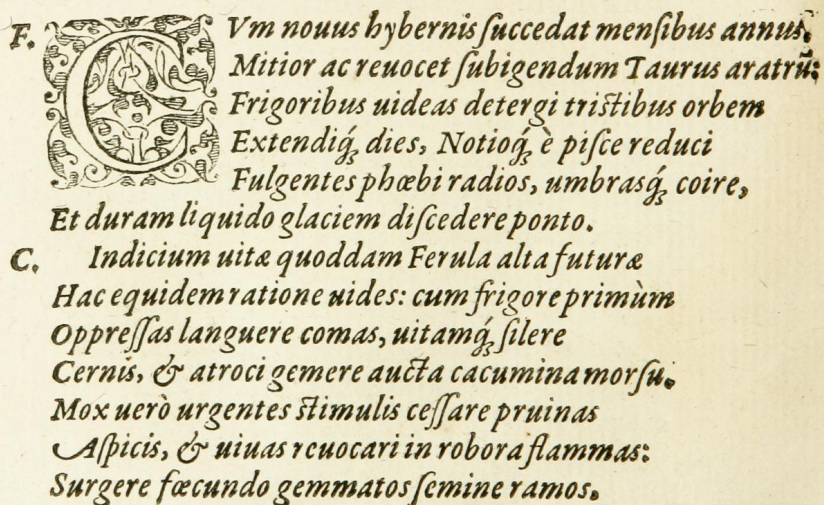 F. CVm nouus hybernis ſuccedat menſibus annus,
Mitior ac reuocet ſubigendum Taurus aratrũ:
Frigoribus uideas detergi triſtibus orbem
Extendiq́; dies, Notioq́; è piſce reduci
Fulgentes phœbi radios, umbrasq́; coire,
Et duram liquido glaciem diſcedere ponto.
C. Indicium uitæ quoddam Ferula alta futuræ
Hac equidem ratione uides: cum frigore primùm
Oppreſſas languere comas, uitamq́; ſilere
Cernis, & atroci gemere aucta cacumina morſu.
Mox uerò urgentes ſtimulis ceſſare pruinas
Aſpicis, & uiuas reuocari in robora flammas:
Surgere fœcundo gemmatos ſemine ramos.